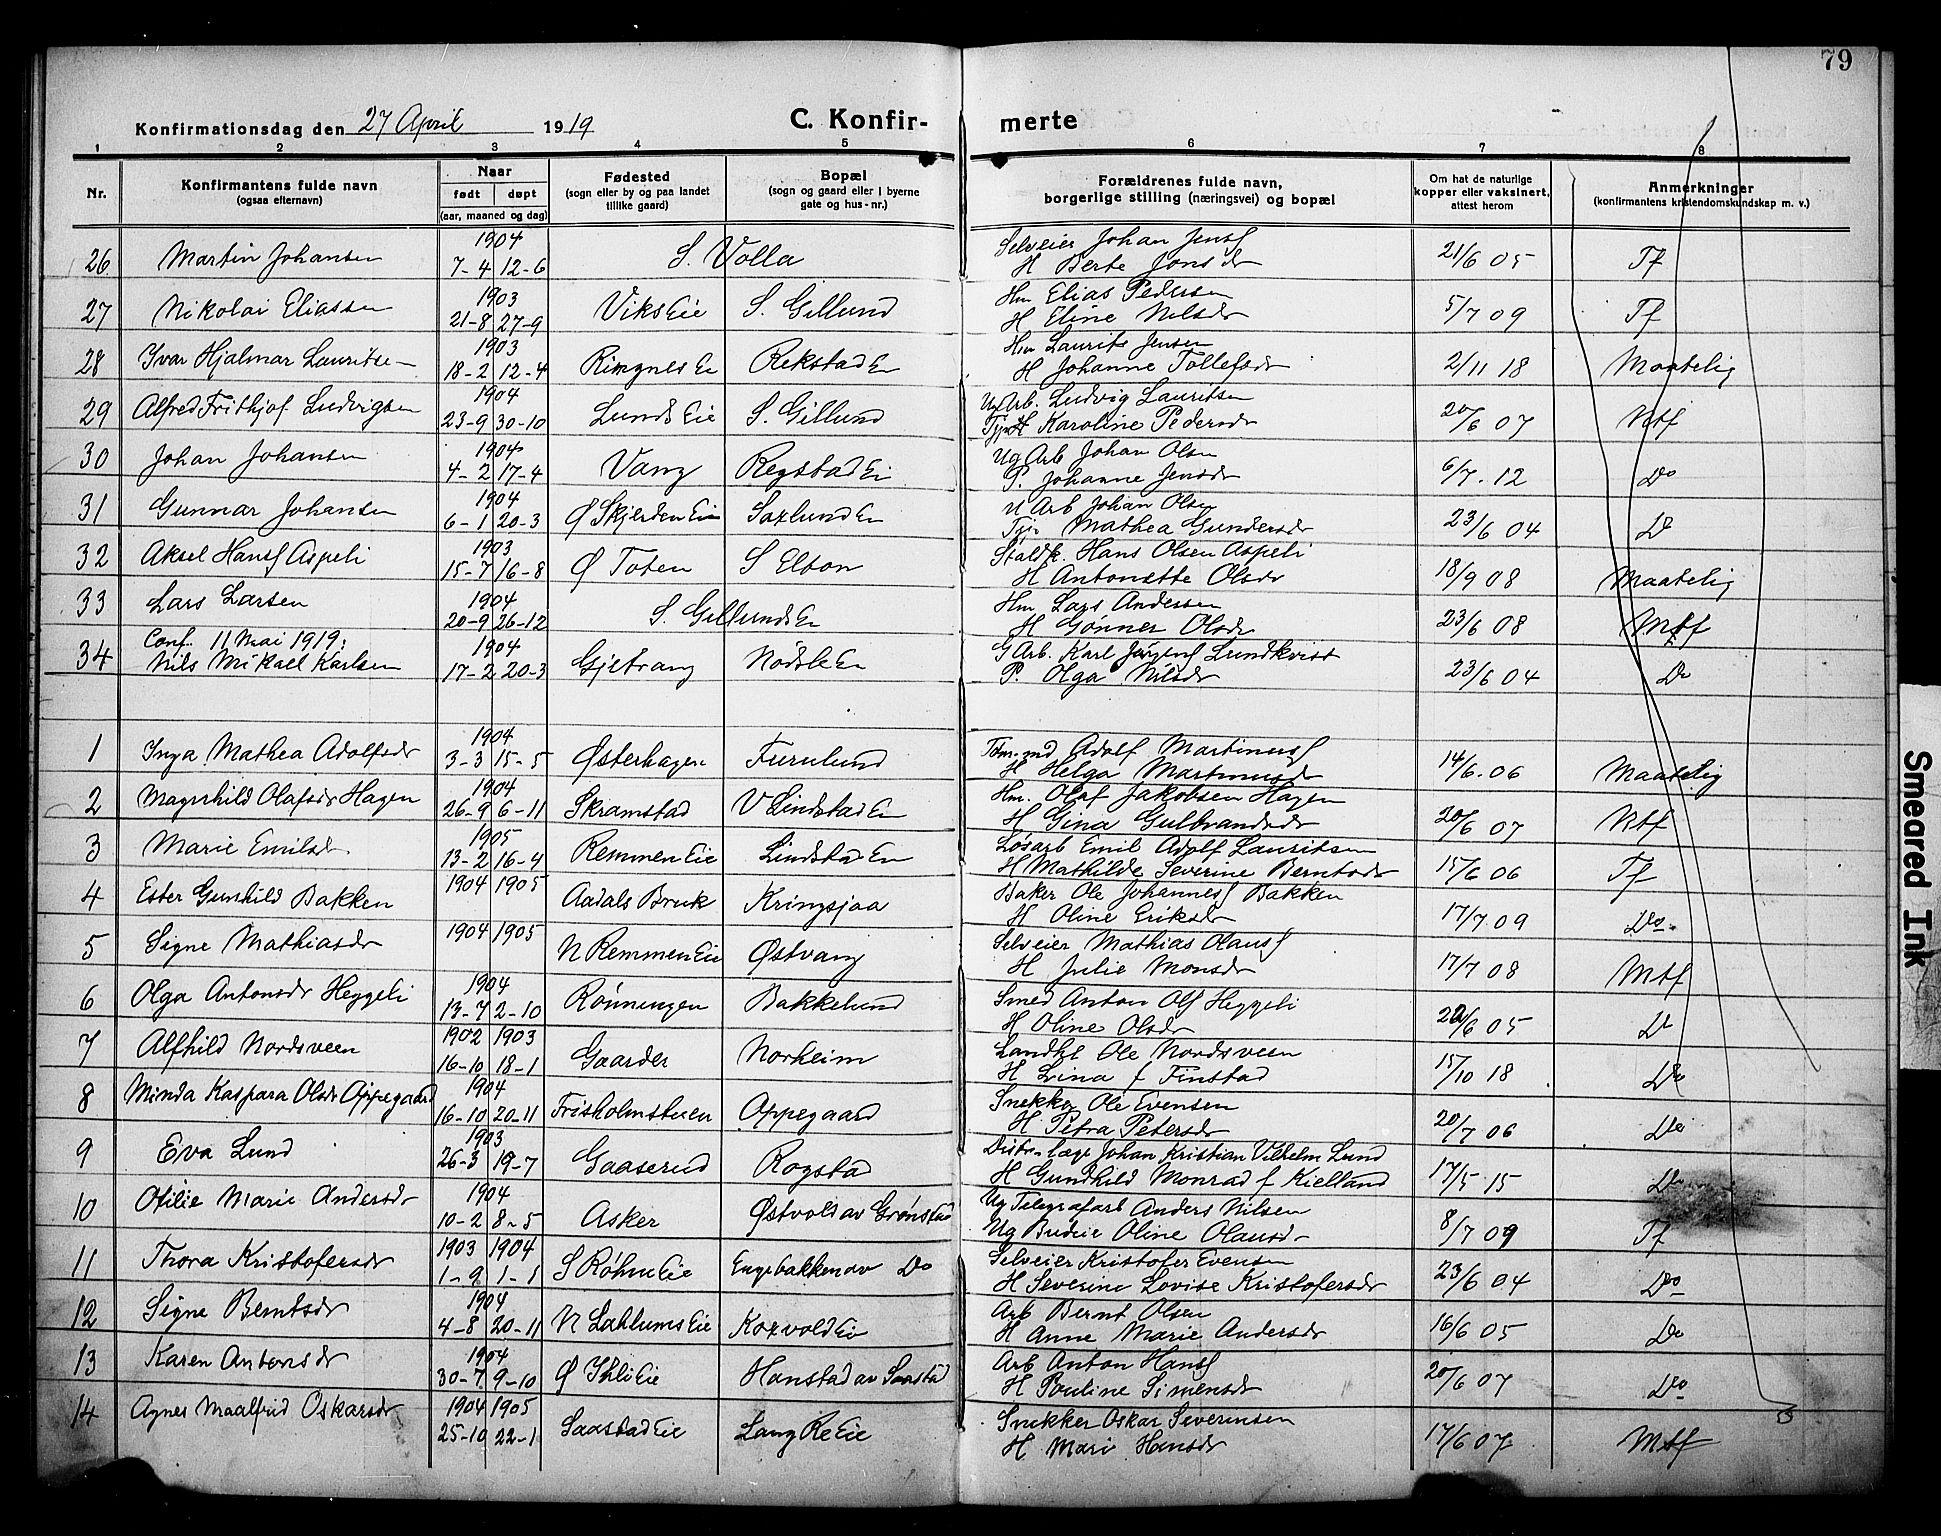 79
Konfirmationsdag den 27 April 1919 C. Konfir- merte
1 2 3 4 5 6 7 8
Nr. Konfirmantens fulde navn (ogsaa efternavn) Naar født døpt (aar, maaned og dag) Fødested (sogn eller by og paa landet tillike gaard) Bopæl (sogn og gaard eller i byerne gate og hus-nr.) Forældrenes fulde navn, borgerlige stilling (næringsvei) og bopæl Om hat de naturlige kopper eller vaksinert, attest herom Anmerkninger (konfirmantens kristendomskundskap m. v.)
1904 Selveier Johan Jensf
26 Martin Johansen 7-4 12-6 S. Volla H Berte Jonsdr 21/6 05 Tf
1903 Hm Elias Pedersen
27 Nikolai Eliassen 21-8 27-9 Viks Eie S. Gillund H Eline Nilsdr 5/7 09 Tf
1903 Hm Laurits Jensen
28 Ivar Hjalmar Lauritse- 18-2 12-4 Ringnes Ei Rekstad Ei H Johanne Tollefsdr 2/11 18 Maatelig
1904 Ug Arb. Ludvig Lauritsen
29 Alfred Frithjof Ludvigsen 23-9 30-10 Lunds Eie S. Gillund H Karoline Pedersdr 20/6 07 Mtf
1904 Ug Arb Johan Olsen
30 Johan Johansen 4-2 17-4 Vang Rogstad Ei P. Johanne Jensdr 6/7. 12 Do
1904 U Arb Johan Olsen
31 Gunnar Johansen 6-1 20-3 Ø Skjerden Eie Saxlund Ei Mathea Gundersdr 23/6 04 Do
1903 Staldk. Hans Olsen Aspeli
32 Aksel Hansf Aspeli 15-7 16-8 Ø Toten S Elton H Antonette Olsdr 18/9 08 Maatelig
1904 Hm Lars Andersen
33 Lars Larsen 20-9 26-12 S. Gillunds Ei H Gönner Olsdr 23/6 08 Mtf
Conf. 11 Mai 1919:
1904 G Arb. Karl Jørgensf Lundkvist
34 Nils Mikael Karlsen 17-2 20-3 Gjetvang Nødsle Ei P. Olga Nilsdr 23/6 04 Do
1904 Tøm.md Adolf Martinusf
1 Inga Mathea Adolfsdr 3-3 15-5 Østerhagen Furulund H Helga Martinusdr 14/6. 06 Maatelig
1904 Hm. Olaf Jakobsen Hagen
2 Magnhild Olafsdr Hagen 26-9 6-11 Skramstad V Lindstad Ei H Gina Gulbrandsdr 20/6 07 Mtf
1905 Løsarb Emil Adolf Lauritsen
3 Marie Emilsdr 13-2 16-4 Remmen Eie Lindstad Ei H Mathilde Severine Berntsdr 15/6 06 Tf
1904 1905 Baker Ole Johannesf Bakken
4 Ester Gunhild Bakken Aadals Bruk Kringsjaa H Oline Eriksdr 17/7 09 Do.
1904 1905 Selveier Mathias Olausf
5 Signe Mathiasdr N Remmen Eie Østvang H Julie Monsdr 17/7 08 Mtf
1904 Smed Anton Olsf Heggeli
6 Olga Antonsdr Heggeli 13-7 2-10 Rönningen Bakkelund H Oline Olsdr 20/6 05 Do
1902 1903 Landh Ole Nordsveen
7 Alfhild Nordsveen 16-10 18-1 Gaarder Norheim H Lina f Finstad 15/10 18 Do
1904 Snekker Ole Evensen
8 Minda Kaspara Olsdr Oppegaard 16-10 20-11 Frisholmstuen Oppegaard H. Petra Petersdr 20/7 06 Do
1903 Distr. læge Johan Kristian Vilhelm Lund
9 Eva Lund 26-3 19-7 Gaaserud Rogstad H Gundhild Monrad f Kielland 17/5 15 Do
1904 Ug Telegrafarb Anders Nilsen
10 Otilie Marie Andersdr 10-2 8-5 Asker Østvold av Grønstad Ug Budeie Oline Olausdr 8/7 09 Tf
1903 1904 Selveier Kristofer Evensen
11 Thora Kristofersdr 1-9 1-1 S Røhne Eie Engebakken av Do H Severine Lovise Kristofersdr 23/6 04 Do
1904 Arb Bernt Olsen
12 Signe Berntsdr 4-8 20-11 N Lahlums Eie Koxvold Ei H Anne Marie Andersdr 16/6 05 Do
1904 Arb Anton Hansf
13 Karen Antonsdr 30-7 9-10 Ø Ihli Eie Hanstad av Saastad H Pauline Simensdr 20/6 07 Do
1904 1905 Snekker Oskar Severinsen
14 Agnes Maalfrid Oskarsdr 25-10 22-1 Saastad Eie Lang Re Eie H Mari Hansdr 17/6 07 Mtf
Smeared Ink